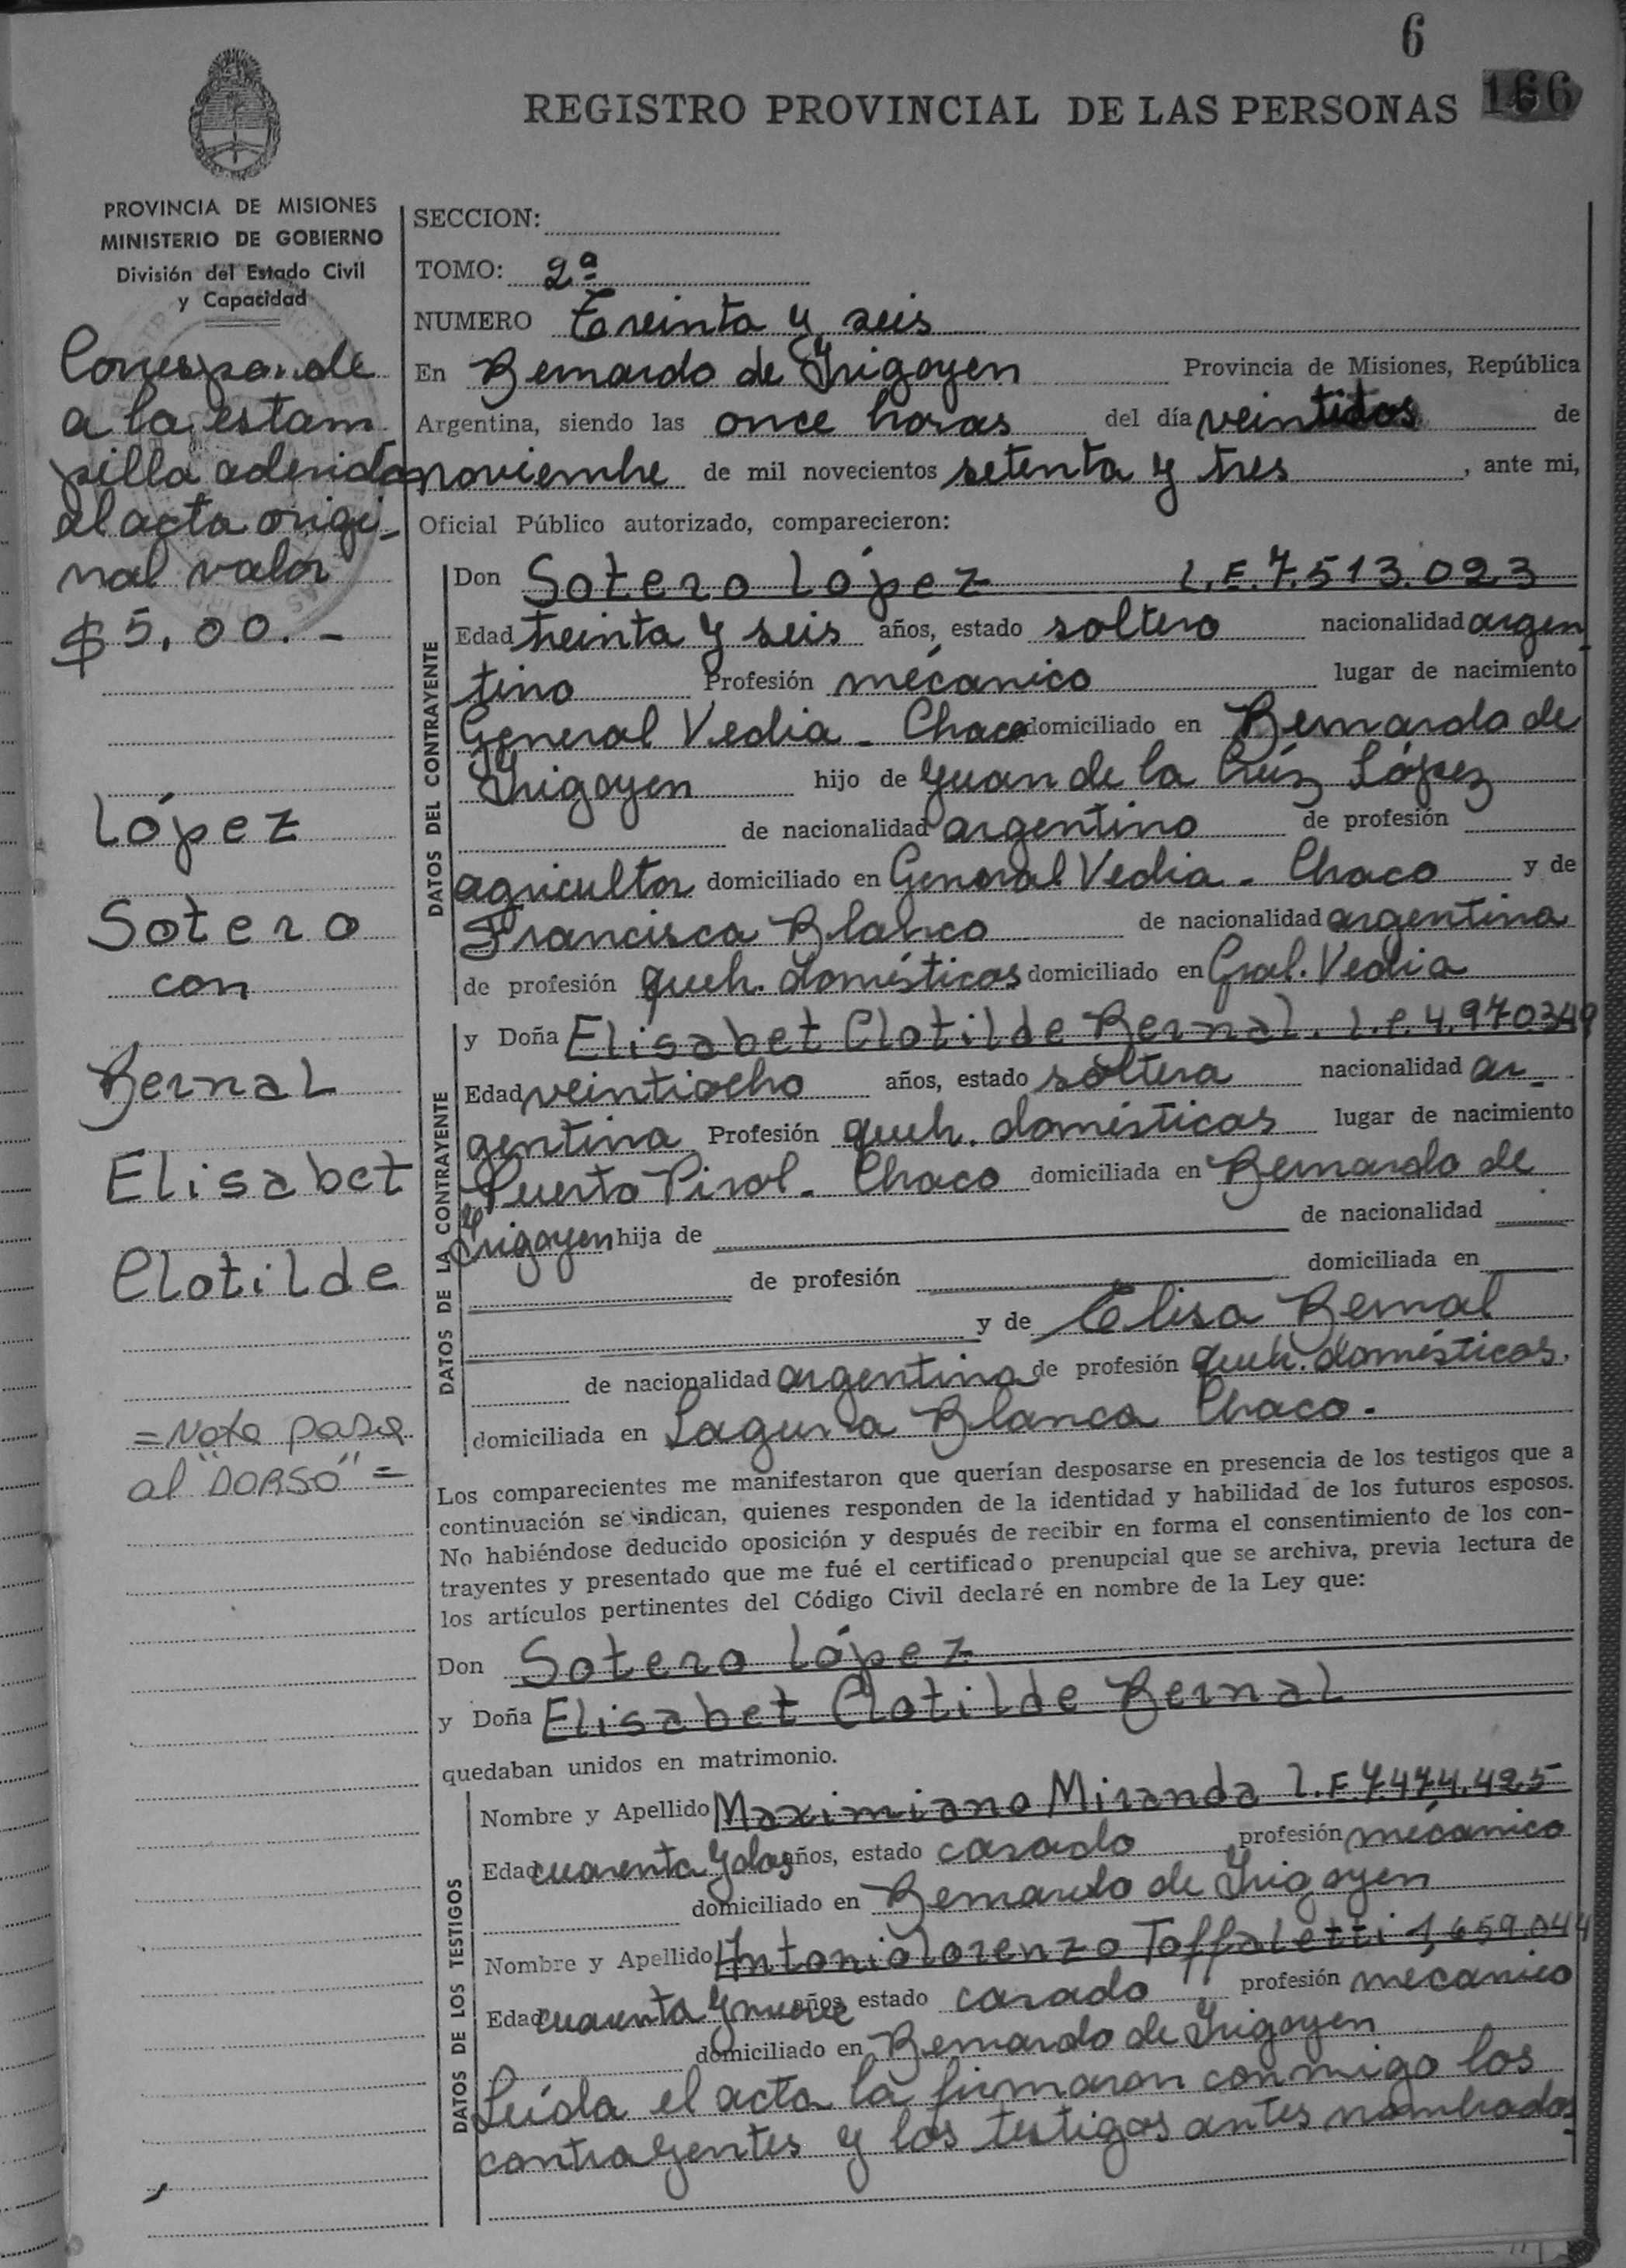 6
REGISTRO PROVINCIAL DE LAS PERSONAS 166
PROVINCIA DE MISIONES
MINISTERIO DE GOBIERNO
División del Estado Civil
y Capacidad
Corresponde
a la estam
pilla aderida
al acta origi-
nal valor
$5,00.-
López
Sotero
con
Bernal
Elisabet
Clotilde
=Nota pasa
al "DORSO"=
SECCION:
TOMO: 2ª
NUMERO Treinta y seis
En Bernardo de Irigoyen Provincia de Misiones, República
Argentina, siendo las once horas del día veintidos de
noviembre de mil novecientos setenta y tres, ante mi,
Oficial Público autorizado, comparecieron:
DATOS DEL CONTRAYENTE
Don Sotero López L.E.7.513.023
Edad treinta y seis años, estado soltero nacionalidad argen-
tino Profesión mecánico lugar de nacimiento
General Vedia - Chaco domiciliado en Bernardo de
Irigoyen hijo de Juan de la Cruz López
de nacionalidad argentino de profesión
agricultor domiciliado en General Vedia - Chaco y de
Francisca Blanco de nacionalidad argentina
de profesión queh. domésticos domiciliado en Gral. Vedia
DATOS DE LA CONTRAYENTE
y Doña Elisabet Clotilde Bernal. L.C. 4.970349
Edad veintiocho años, estado soltera nacionalidad ar-
gentina Profesión queh. domésticas lugar de nacimiento
Puerto Pirol - Chaco domiciliada en Bernardo de
Irigoyen hija de de nacionalidad
de profesión domiciliada en
y de Elisa Bernal
de nacionalidad argentina de profesión queh. domésticos,
domiciliada en Laguna Blanca Chaco.
Los comparecientes me manifestaron que querían desposarse en presencia de los testigos que a
continuación se indican, quienes responden de la identidad y habilidad de los futuros esposos.
No habiéndose deducido oposición y después de recibir en forma el consentimiento de los con-
trayentes y presentado que me fué el certificado prenupcial que se archiva, previa lectura de
los artículos pertinentes del Código Civil declaré en nombre de la Ley que:
Don Sotero López
y Doña Elisabet Clotilde Bernal
quedaban unidos en matrimonio.
DATOS DE LOS TESTIGOS
Nombre y Apellido Maximiano Miranda L.E.7.474.425
Edad cuarenta y dos años, estado casado profesión mecánico
domiciliado en Bernardo de Irigoyen
Nombre y Apellido Antonio Lorenzo Toffaletti 1,659.044
Edad cuarenta y nueve años, estado casado profesión mecánico
domiciliado en Bernardo de Irigoyen
Leída el acta la firmaron conmigo los
contrayentes y los testigos antes nombrados